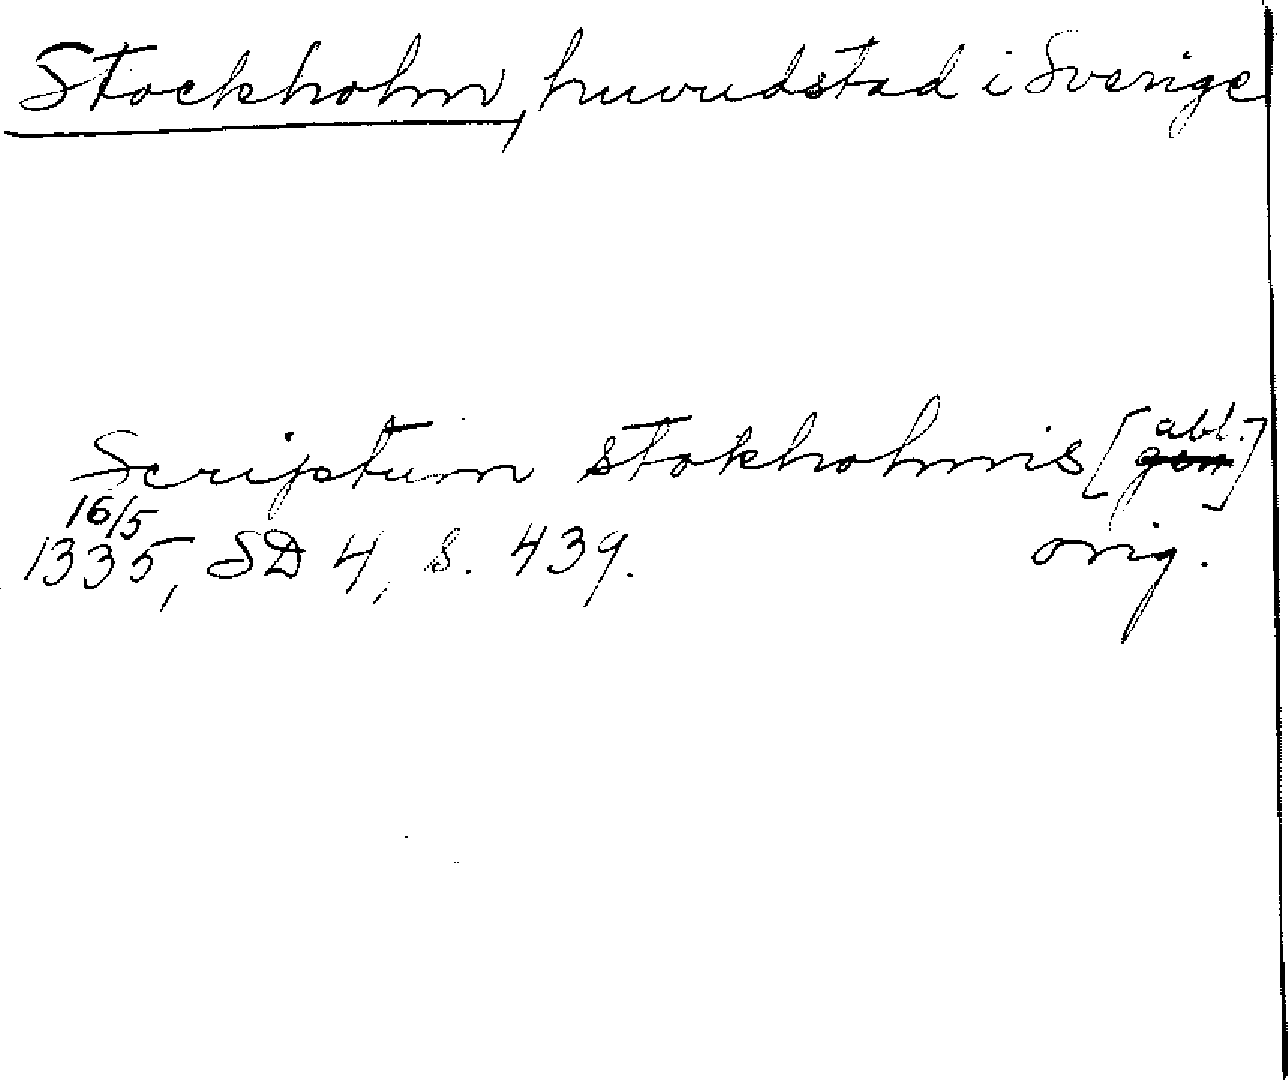 Stockholm, huvudstad i Sverige
Scriptum stokholmis [abl.]
16/5
1335, SD 4, s. 439. orig.